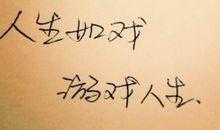 人生如戏
游戏人生.